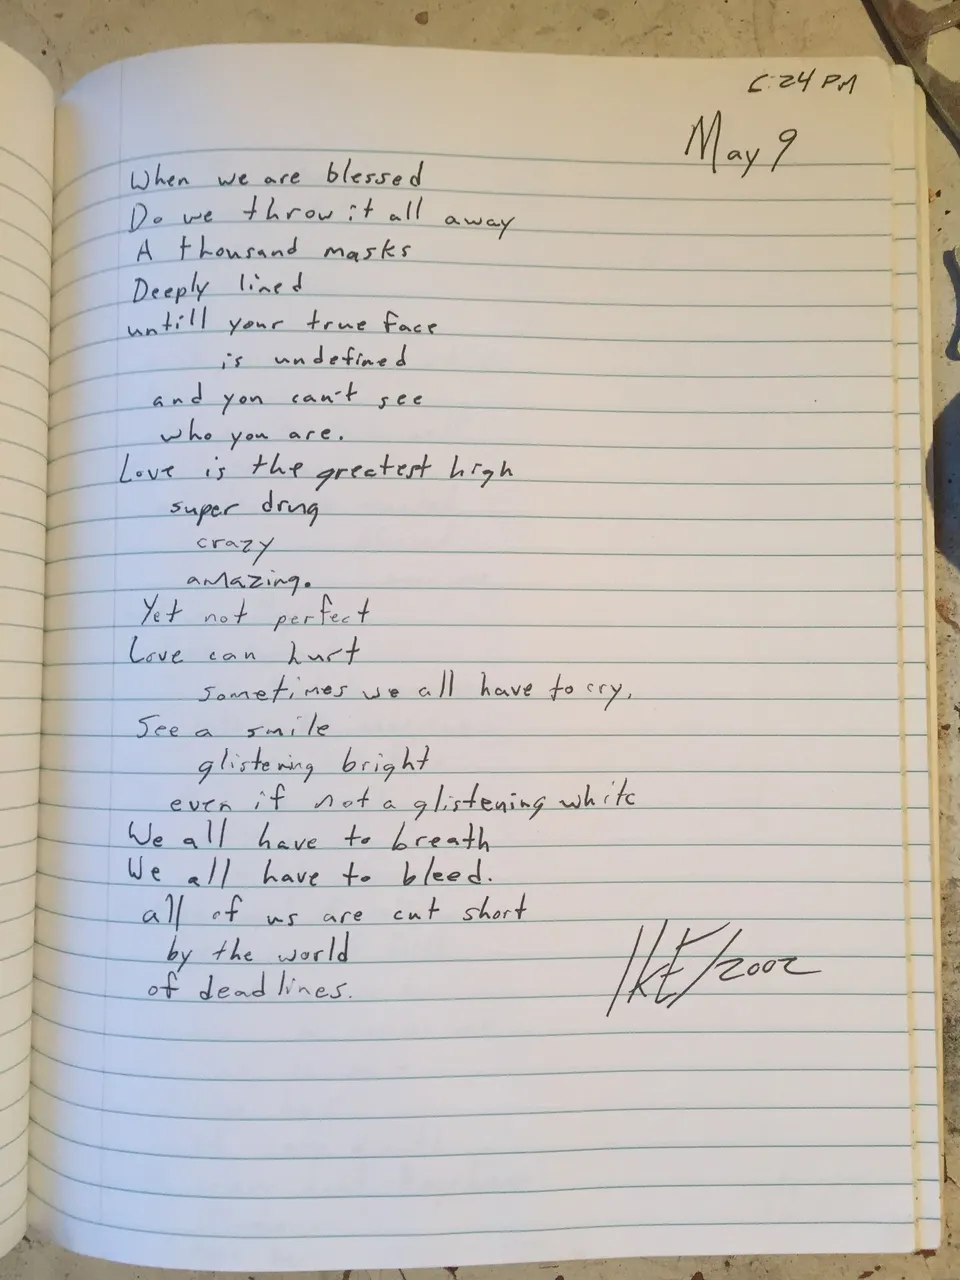 6:24 PM
May 9
When we are blessed
Do we throw it all away
A thousand masks
Deeply lined
untill your true face
is undefined
and you can't see
who you are.
Love is the greatest high
super drug
crazy
amazing.
Yet not perfect
Love can hurt
sometimes we all have to cry.
See a smile
glistening bright
even if not a glistening white
We all have to breath
We all have to bleed.
all of us are cut short
by the world
of deadlines.
/2002